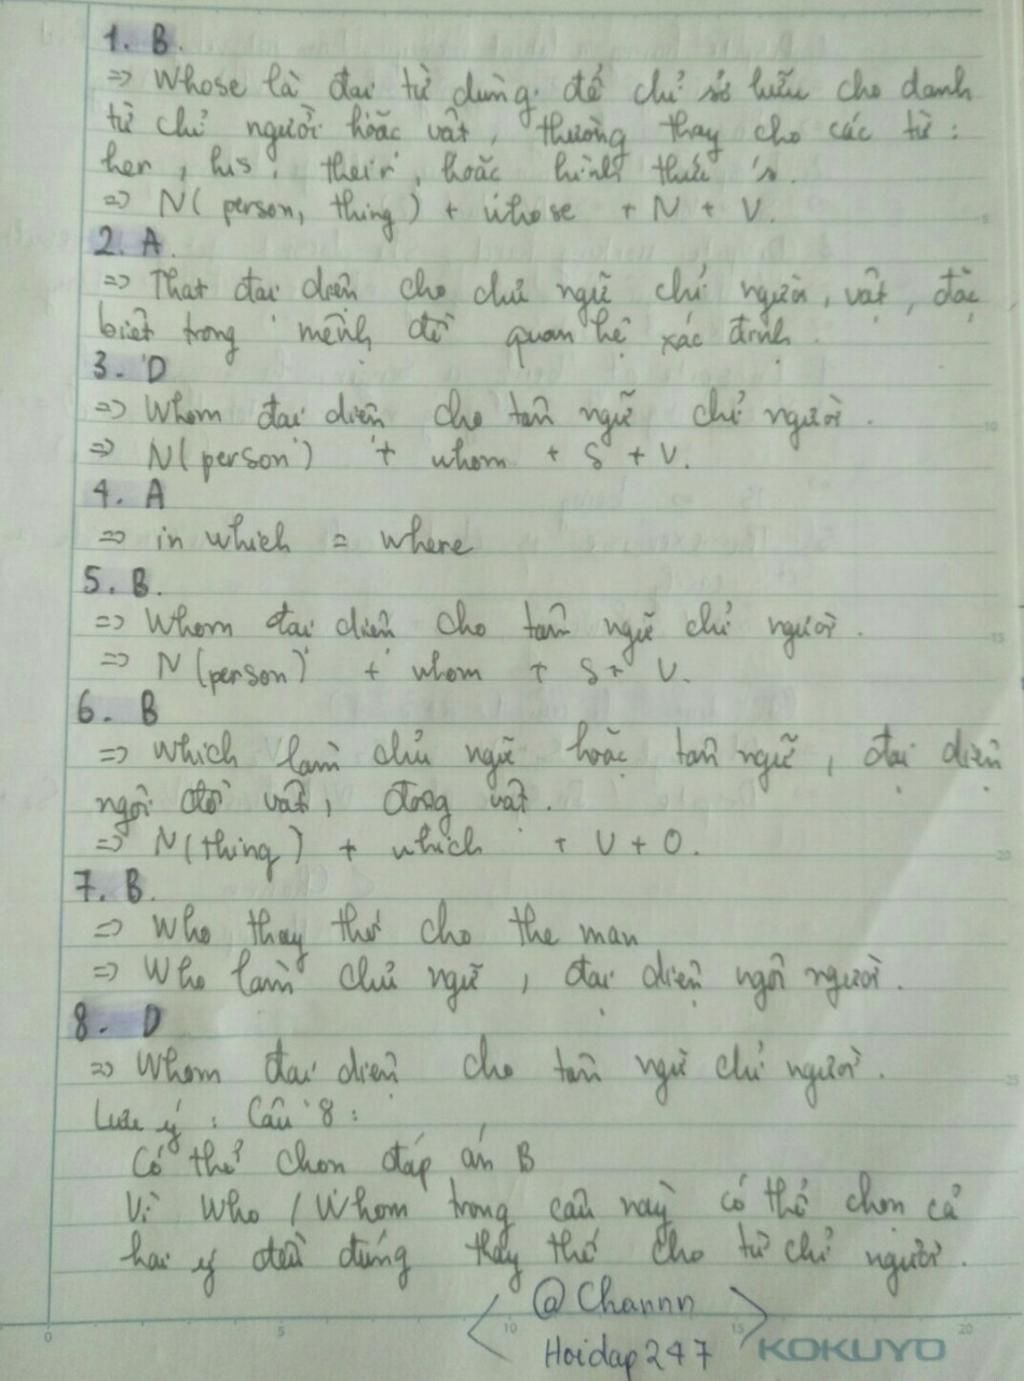 1. B.
=> Whose là đại từ dùng để chỉ sở hữu cho danh
từ chỉ người hoặc vật, thường thay cho các từ:
her, his, their, hoặc hình thức 's.
=> N(person, thing) + whose + N + V.
2. A
=> That đại diện cho chủ ngữ chỉ người, vật, đặc
biệt trong mệnh đề quan hệ xác định.
3. D
=> Whom đại diện cho tân ngữ chỉ người.
=> N(person) + whom + S + V.
4. A
=> in which = where
5. B.
=> Whom đại diện cho tân ngữ chỉ người.
=> N(person) + whom + S + V.
6. B
=> Which làm chủ ngữ hoặc tân ngữ, đại diện
ngôi đồ vật, động vật.
=> N(thing) + which + V + O.
7. B.
=> Who thay thế cho the man
=> Who làm chủ ngữ, đại diện ngôi người.
8. D
=> Whom đại diện cho tân ngữ chỉ người.
Lưu ý: Câu 8:
Có thể chọn đáp án B
Vì Who / Whom trong câu này có thể chọn cả
hai ý đều đúng thay thế cho từ chỉ người.
@Channn
Hoidap247
0 5 10 15 20
KOKUYO